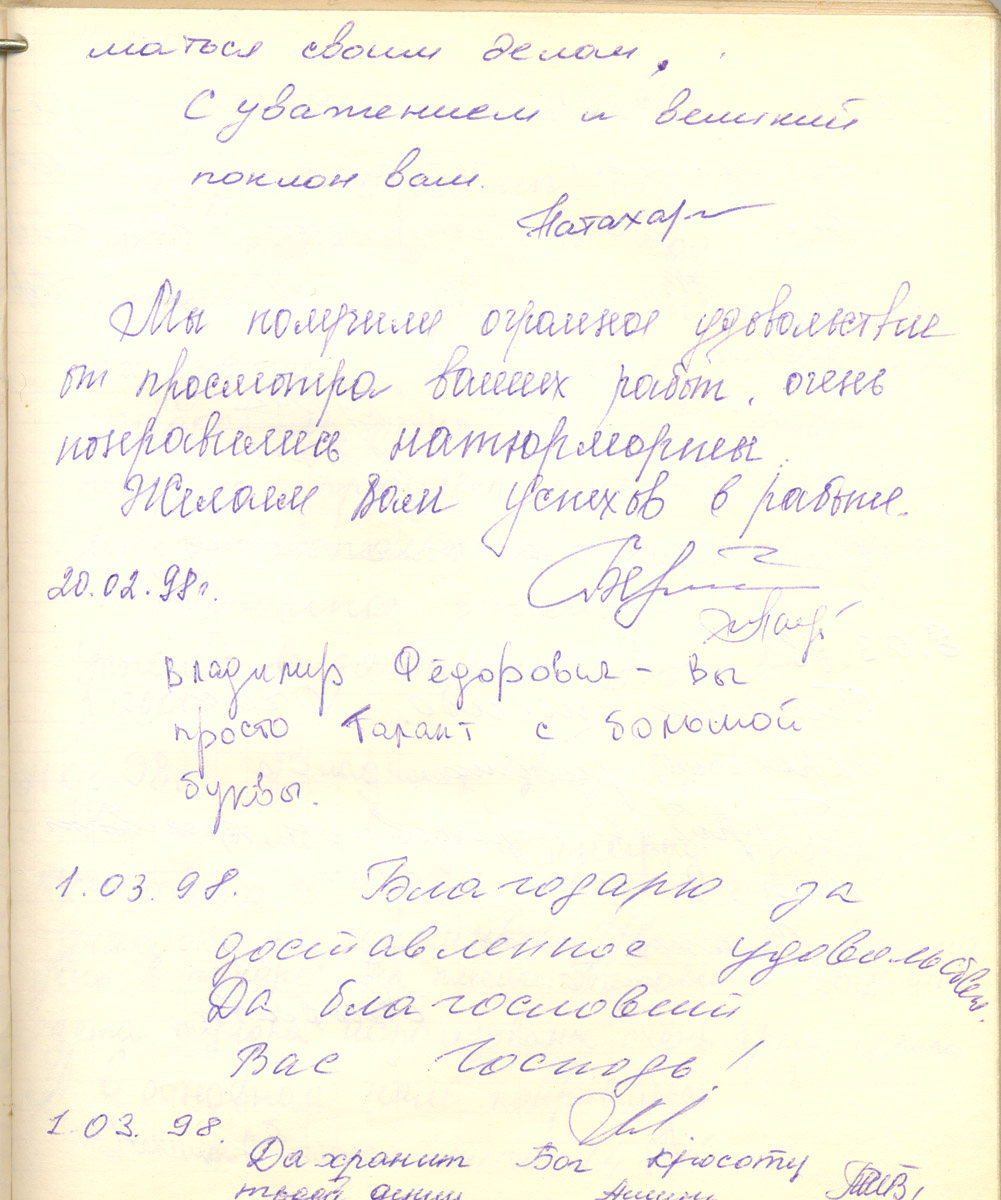 маться своим делом.
С уважением и великий
поклон вам.
Мы получили огромное удовольствие
от просмотра ваших работ, очень
понравились натюрморты.
Желаем Вам успехов в работе.
20.02.98г.
Владимир Фёдорович - Вы
просто Талант с большой
буквы.
1.03.98. Благодарю за
доставленное удовольствие.
Да благословит
Вас Господь!
1.03.98.
Да хранит Бог красоту